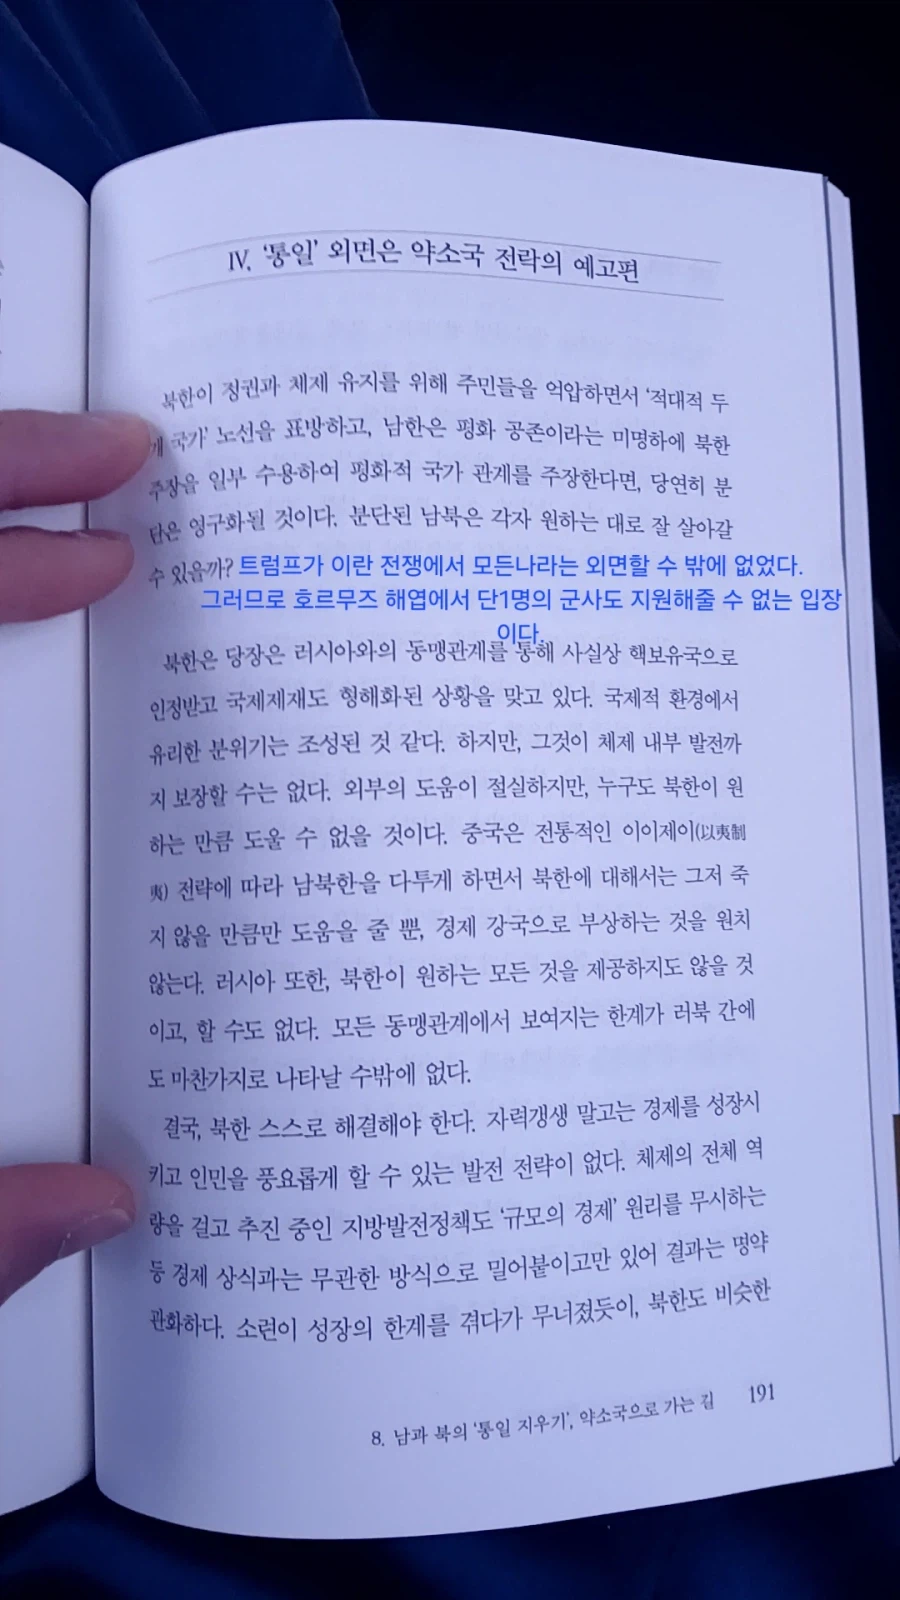 Ⅳ. '통일' 외면은 약소국 전락의 예고편
북한이 정권과 체제 유지를 위해 주민들을 억압하면서 '적대적 두
개 국가' 노선을 표방하고, 남한은 평화 공존이라는 미명하에 북한
주장을 일부 수용하여 평화적 국가 관계를 주장한다면, 당연히 분
단은 영구화될 것이다. 분단된 남북은 각자 원하는 대로 잘 살아갈
수 있을까? 트럼프가 이란 전쟁에서 모든나라는 외면할 수 밖에 없었다.
그러므로 호르무즈 해엽에서 단1명의 군사도 지원해줄 수 없는 입장
이다.
북한은 당장은 러시아와의 동맹관계를 통해 사실상 핵보유국으로
인정받고 국제제재도 형해화된 상황을 맞고 있다. 국제적 환경에서
유리한 분위기는 조성된 것 같다. 하지만, 그것이 체제 내부 발전까
지 보장할 수는 없다. 외부의 도움이 절실하지만, 누구도 북한이 원
하는 만큼 도울 수 없을 것이다. 중국은 전통적인 이이제이(以夷制
夷) 전략에 따라 남북한을 다투게 하면서 북한에 대해서는 그저 죽
지 않을 만큼만 도움을 줄 뿐, 경제 강국으로 부상하는 것을 원치
않는다. 러시아 또한, 북한이 원하는 모든 것을 제공하지도 않을 것
이고, 할 수도 없다. 모든 동맹관계에서 보여지는 한계가 러북 간에
도 마찬가지로 나타날 수밖에 없다.
결국, 북한 스스로 해결해야 한다. 자력갱생 말고는 경제를 성장시
키고 인민을 풍요롭게 할 수 있는 발전 전략이 없다. 체제의 전체 역
량을 걸고 추진 중인 지방발전정책도 '규모의 경제' 원리를 무시하는
등 경제 상식과는 무관한 방식으로 밀어붙이고만 있어 결과는 명약
관화하다. 소련이 성장의 한계를 겪다가 무너졌듯이, 북한도 비슷한
8. 남과 북의 '통일 지우기', 약소국으로 가는 길 191